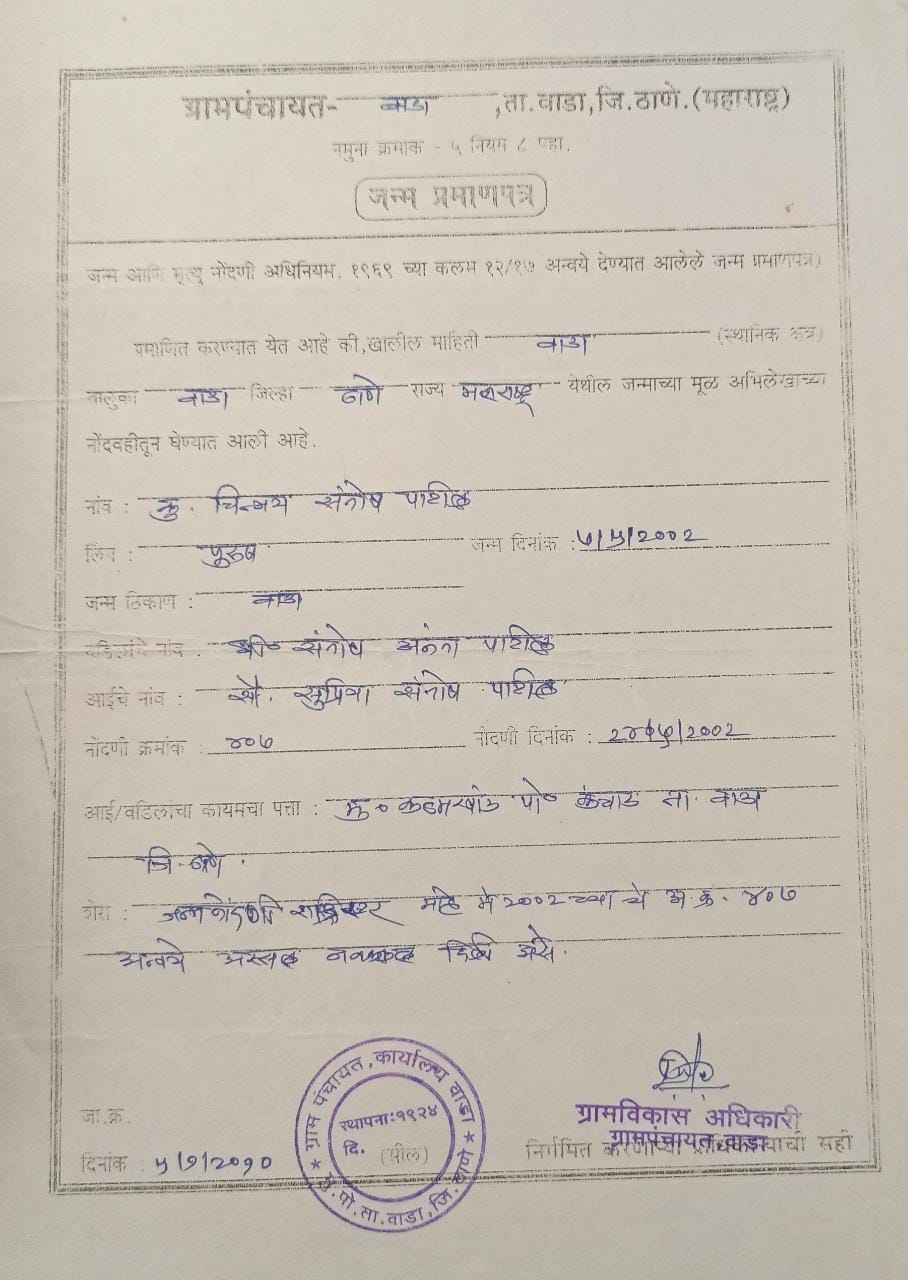 ग्रामपंचायत- वाडा ,ता.वाडा,जि.ठाणे.(महाराष्ट्र)
नमुना क्रमांक - ५ नियम ८ पहा.
जन्म प्रमाणपत्र
जन्म आणि मृत्यु नोंदणी अधिनियम. १९६९ च्या कलम १२/१७ अन्वये देण्यात आलेले जन्म प्रमाणपत्र)
प्रमाणित करण्यात येत आहे की,खालील माहिती वाडा (स्थानिक क्षेत्र)
तालुका वाडा जिल्हा ठाणे राज्य महाराष्ट्र येथील जन्माच्या मूळ अभिलेखाच्या
नोंदवहीतून घेण्यात आली आहे.
नांव : कु. चिन्मय संतोष पाटील
लिंग : पुरुष जन्म दिनांक : ५/५/2002
जन्म ठिकाण : वाडा
वडिलांचे नांव : श्री॰ संतोष अनंता पाटील
आईचे नांव : सौ. सुप्रिया संतोष पाटील
नोंदणी क्रमांक : ४०७ नोंदणी दिनांक : 2४/५/2002
आई/वडिलांचा कायमचा पत्ता : मु॰ पो॰ ता. वाडा
जि. ठाणे.
शेरा : जन्म नोंदणी रजिस्टर माहे मे 2002 च्या चे अ.क्र. ४०७
अन्वये अस्सल नक्कल दिली असे.
जा.क्र.
दिनांक : ५/९/2०१०
ग्राम पंचायत, कार्यालय वाडा
स्थापना:१९२४
दि.
(सील)
मु.पो.ता.वाडा,जि.ठाणे
ग्रामविकास अधिकारी
ग्रामपंचायत वाडा
निर्गमित करणाऱ्या प्राधिकाऱ्याची सही